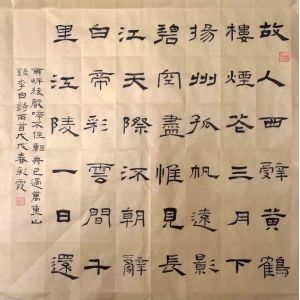 故人西辭黃鶴
樓煙花三月下
揚州孤帆遠影
碧空盡惟見長
江天際流朝辭
白帝彩雲間千
里江陵一日還
兩岸猿聲啼不住輕舟已過萬重山
錄李白詩兩首戊戌春彩霞